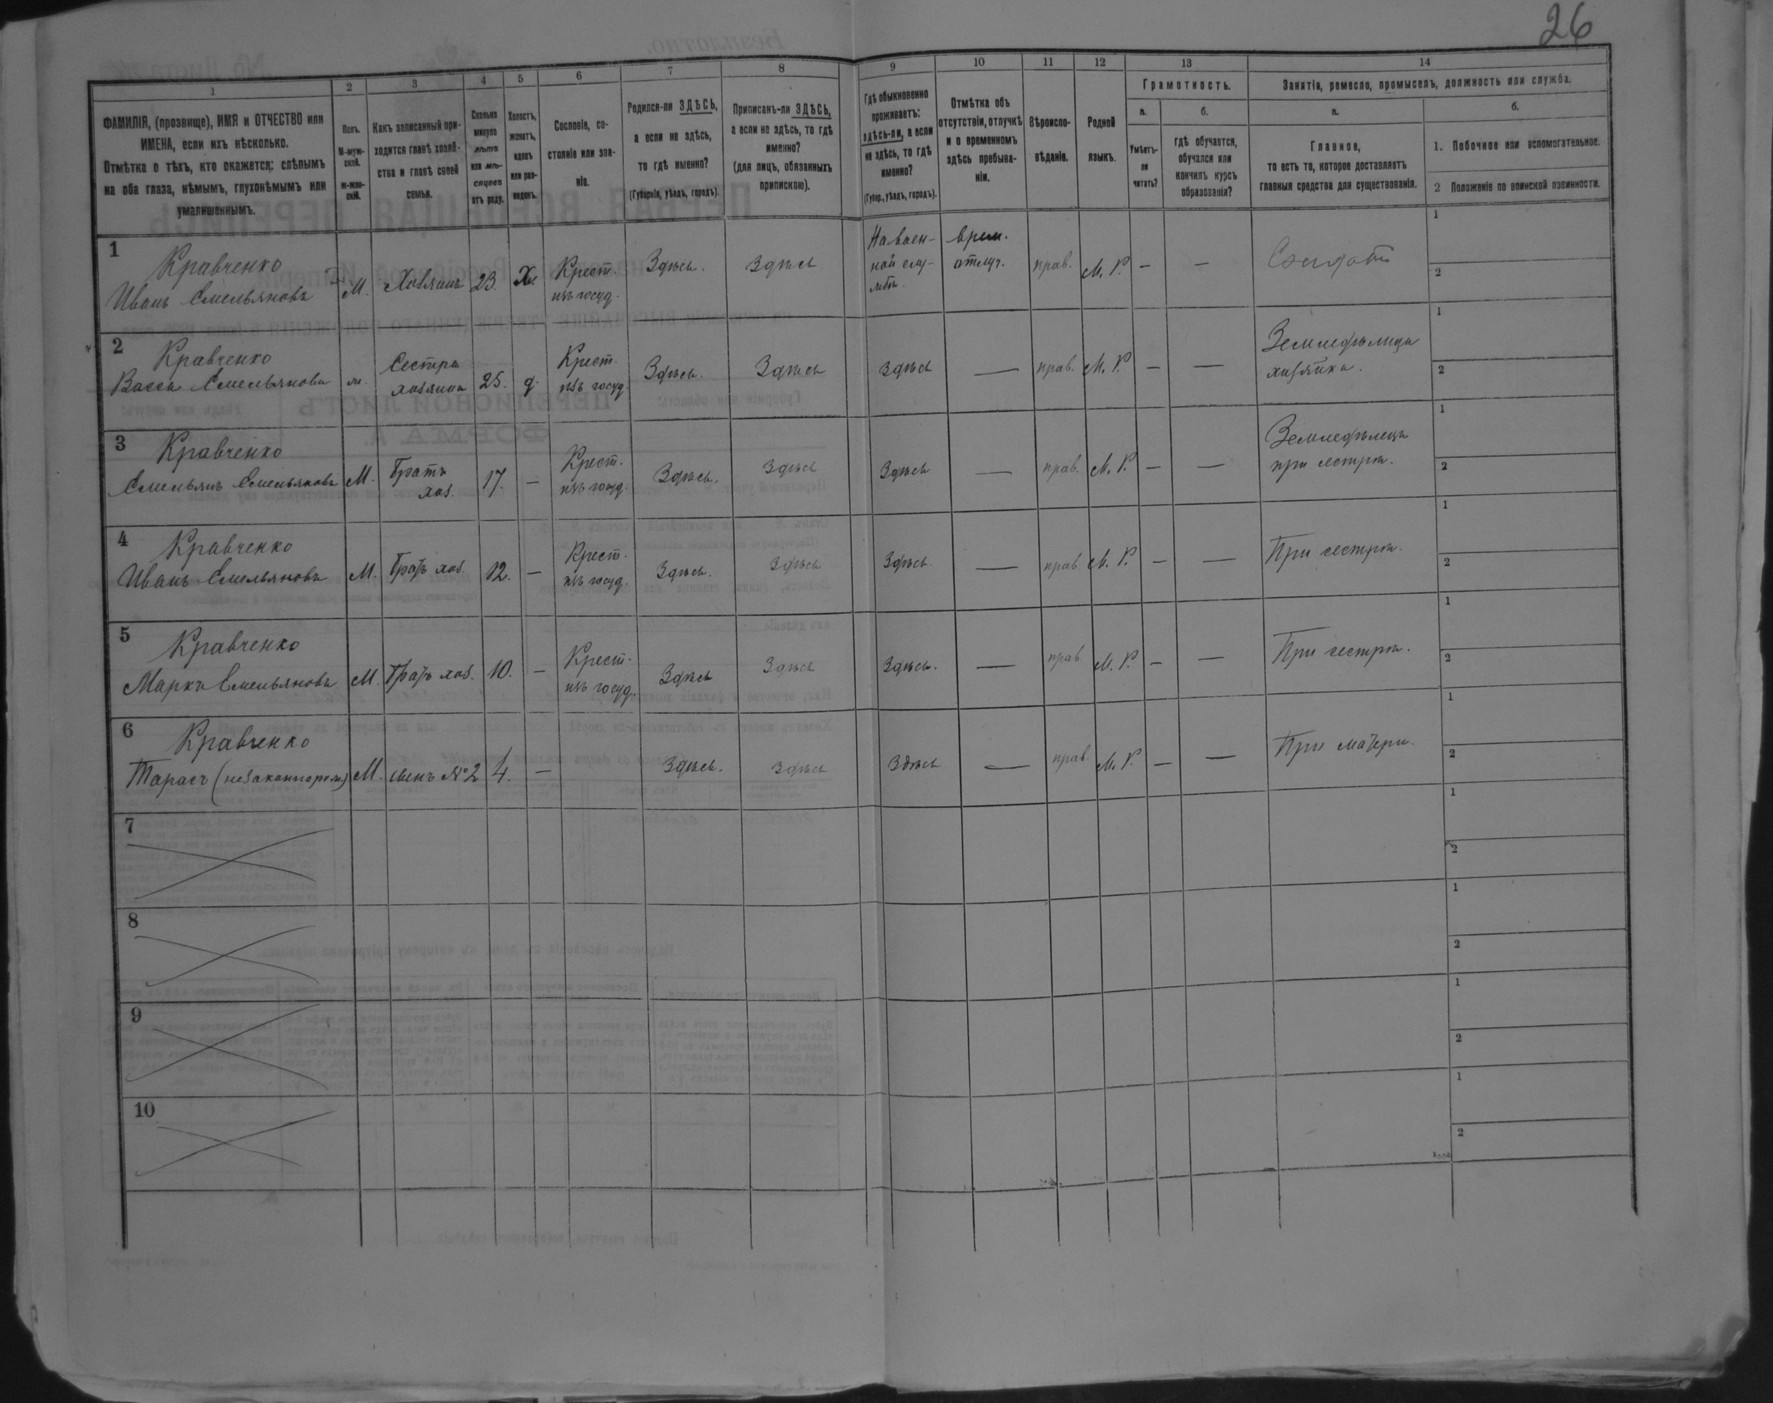 26
1
2
3
4
5
6
7
8
9
10
11
12
13
14
ФАМИЛІЯ, (прозвище), ИМЯ и ОТЧЕСТВО или
ИМЕНА, если ихъ нѣсколько.
Отмѣтка о тѣхъ, кто окажется: слѣпымъ
на оба глаза, нѣмымъ, глухонѣмымъ или
умалишеннымъ.
Полъ.
М-муж-
ской.
ж-жен-
скій.
Какъ записанный при-
ходится главѣ хозяй-
ства и главѣ своей
семьи.
Сколько
минуло
лѣтъ
или мѣ-
сяцевъ
отъ роду.
Холостъ,
женатъ,
вдовъ
или раз-
веденъ.
Сословіе, со-
стояніе или зва-
ніе.
Родился-ли ЗДѢСЬ,
а если не здѣсь,
то гдѣ именно?
(Губернія, уѣздъ, городъ).
Приписанъ-ли ЗДѢСЬ,
а если не здѣсь, то гдѣ
именно?
(для лицъ, обязанныхъ
припискою).
Гдѣ обыкновенно
проживаетъ:
здѣсь-ли, а если
не здѣсь, то гдѣ
именно?
(Губер., уѣздъ, городъ).
Отмѣтка объ
отсутствіи, отлучкѣ
и о временномъ
здѣсь пребыва-
ніи.
Вѣроиспо-
вѣданіе.
Родной
языкъ.
Грамотность.
а.
Умѣетъ-
ли
читать?
б.
гдѣ обучается,
обучался или
кончилъ курсъ
образованія?
Занятіе, ремесло, промыселъ, должность или служба.
а.
Главное,
то есть то, которое доставляетъ
главныя средства для существованія.
б.
1. Побочное или вспомогательное.
2 Положеніе по воинской повинности.
1
Кравченко
Иванъ Емельяновъ
М.
Хозяинъ
23.
Х.
Крест.
изъ госуд.
Здѣсь.
Здѣсь
На воен-
ной слу-
жбѣ.
врем.
отлуч.
прав.
М. Р.
—
—
Солдатъ
1
2
2
Кравченко
Васса Емельянова
Сестра
хозяина
25.
д.
Крест.
изъ госуд.
Здѣсь.
Здѣсь
здѣсь
—
прав.
М. Р.
—
—
Земледѣлица
хозяйка.
1
2
3
Кравченко
Емельянъ Емельяновъ
М.
Братъ
хоз.
17.
—
Крест.
изъ госуд.
Здѣсь.
Здѣсь
Здѣсь
—
прав.
М. Р.
—
—
Земледѣлецъ
при сестрѣ.
1
2
4
Кравченко
Иванъ Емельяновъ
М.
Братъ хоз.
12.
—
Крест.
изъ госуд.
Здѣсь.
Здѣсь
Здѣсь
—
прав
М. Р.
—
—
При сестрѣ.
1
2
5
Кравченко
Марко Емельяновъ
М.
Братъ хоз.
10.
—
Крест.
изъ госуд.
Здѣсь
Здѣсь
Здѣсь.
—
прав
М. Р.
—
—
При сестрѣ.
1
2
6
Кравченко
Тарасъ (незаконнорож)
М.
сынъ №2
4.
—
Здѣсь.
Здѣсь
Здѣсь
—
прав.
М. Р.
—
—
При матери.
1
2
7
1
2
8
1
2
9
1
2
10
1
2